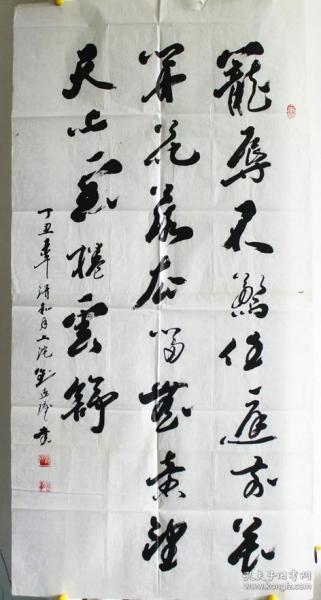 寵辱不驚任庭前花
開花落去留無意望
天上雲捲雲舒
丁丑年清和月上浣
孔夫子旧书网